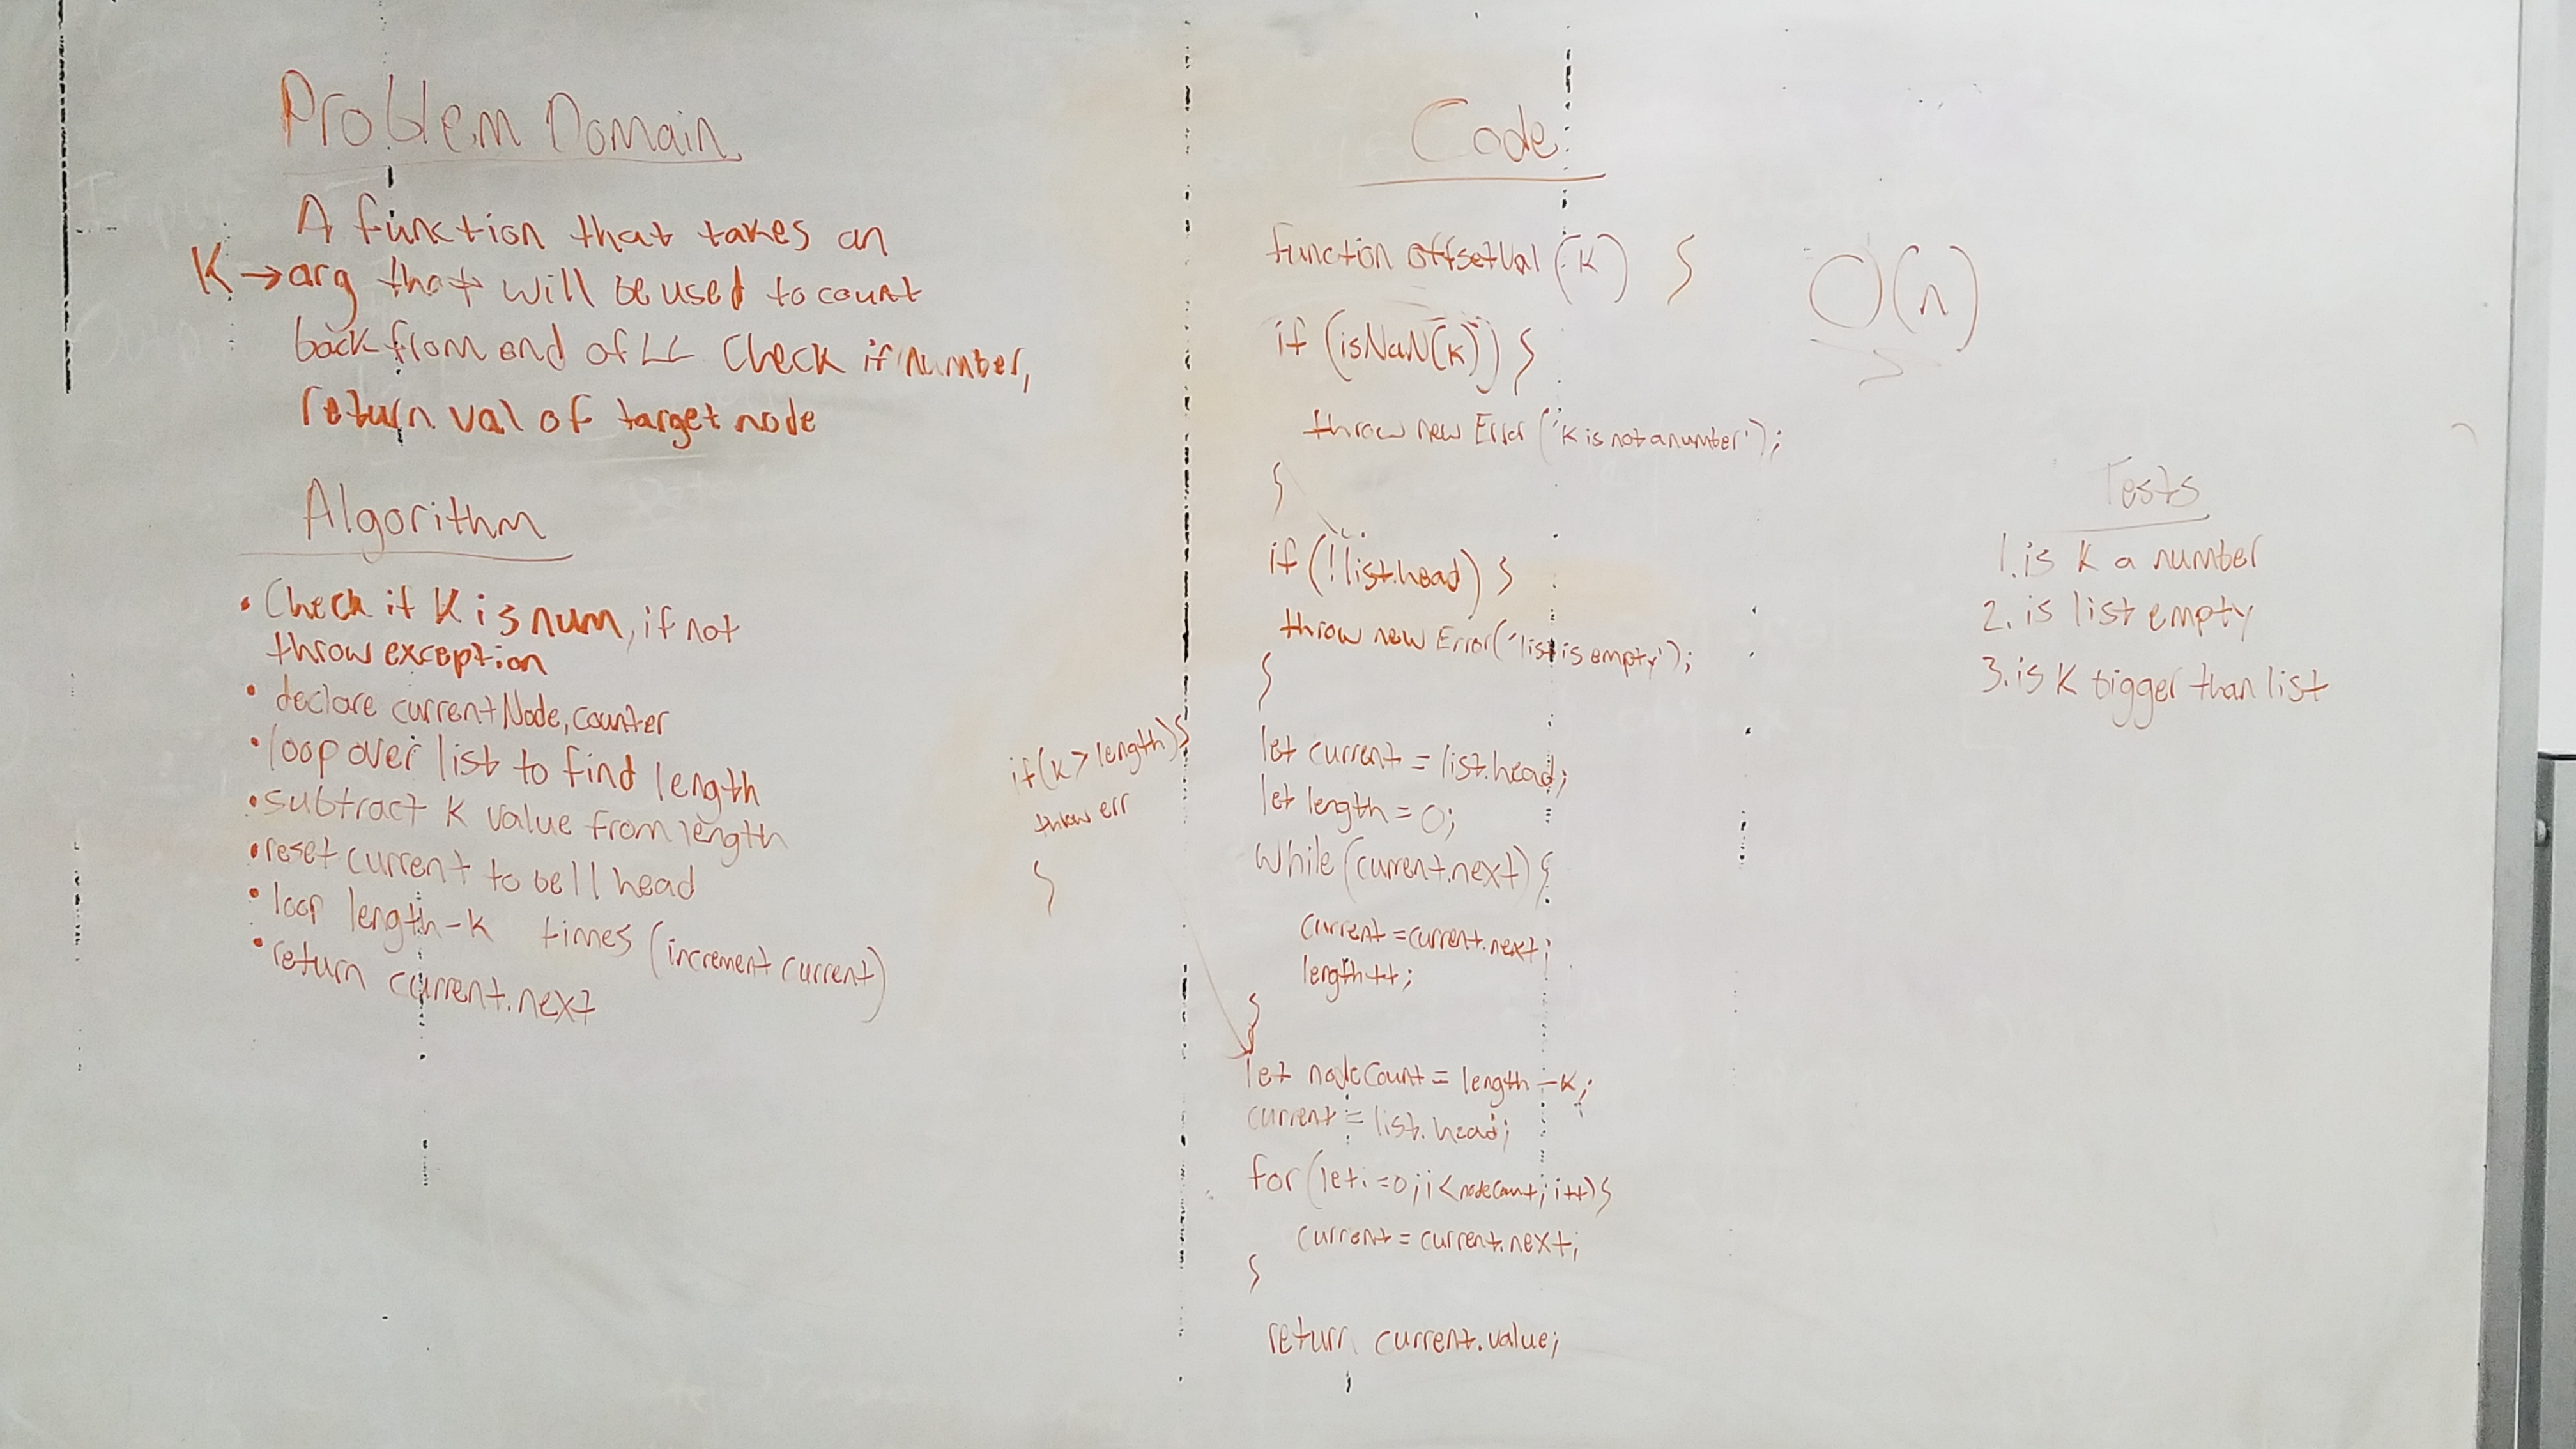 Problem Domain
A function that takes an
K → arg that will be used to count
back from end of LL Check if number,
return val of target node
Algorithm
• Check if K is num, if not
throw exception
• declare currentNode, counter
• loop over list to find length
• subtract K value from length
• reset current to be ll head
• loop length-K times (increment current)
• return current.next
if(K > length){
throw err
}
Code
function offsetVal (K) {
if (isNaN(K)) {
throw new Error('K is not a number');
}
if (!list.head) {
throw new Error('list is empty');
}
let current = list.head;
let length = 0;
while (current.next) {
current = current.next;
length++;
}
let nodeCount = length - K;
current = list.head;
for (let i = 0; i < nodeCount; i++) {
current = current.next;
}
return current.value;
O(n)
Tests
1. is K a number
2. is list empty
3. is K bigger than list